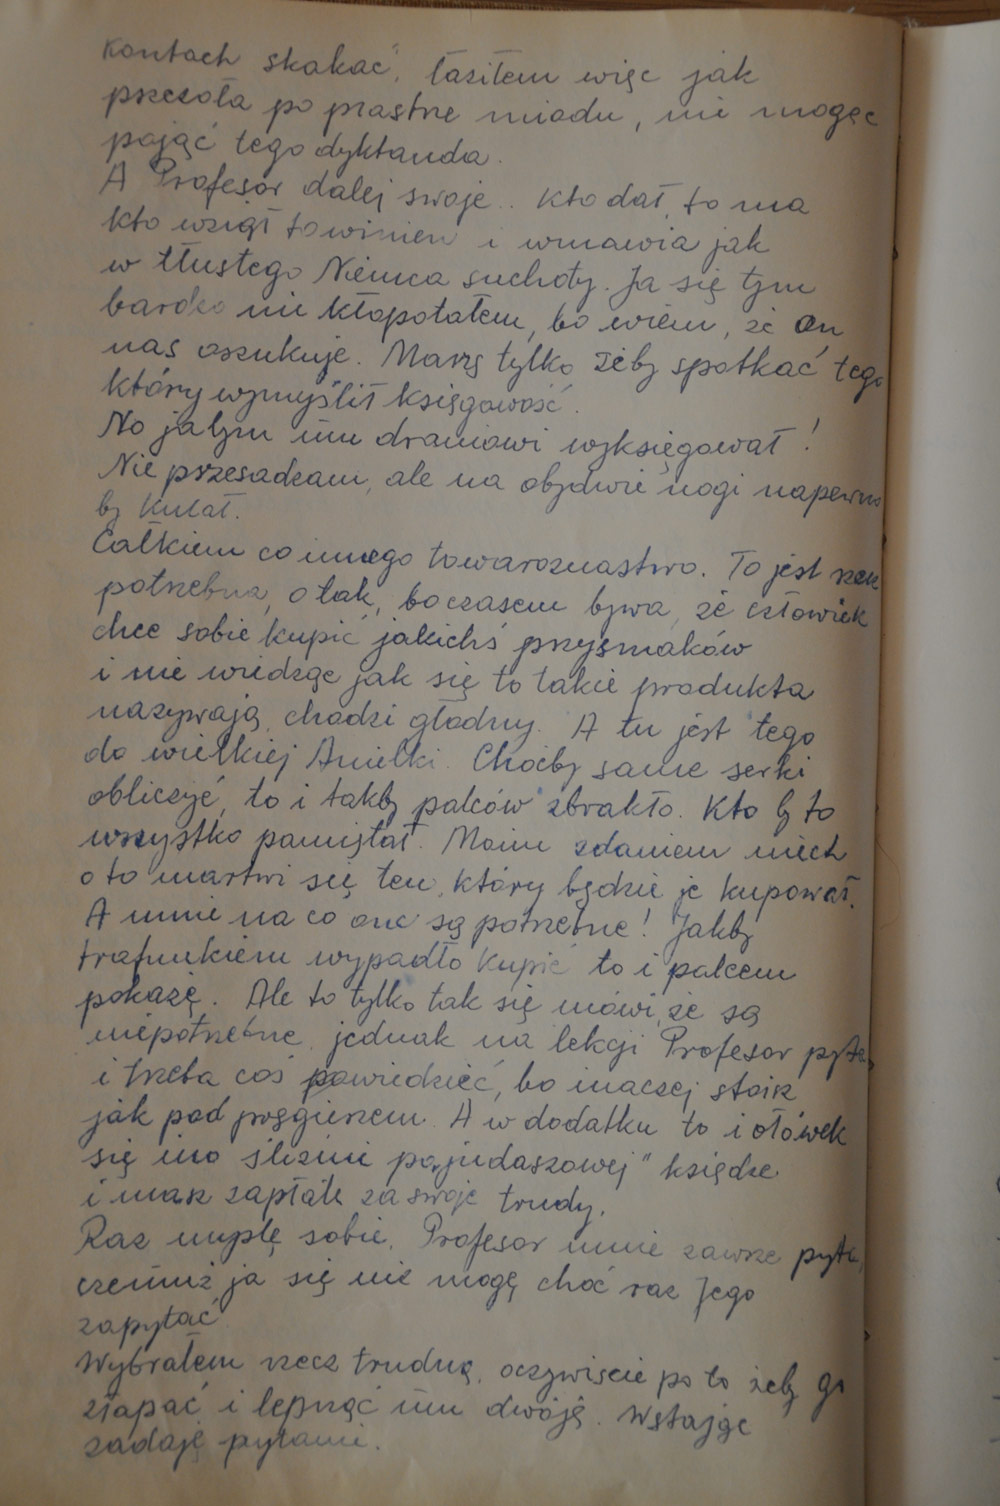 kontach skakać, łaziłem więc jak
pszczoła po plastrze miodu, nie mogąc
pojąć tego dyktanda.
A Profesor dalej swoje.. Kto dał, to ma
kto wziął to winien i wmawia jak
w tłustego Niemca suchoty. Ja się tym
bardzo nie kłopotałem, bo wiem, że on
nas oszukuje. Marzę tylko żeby spotkać tego
który wymyślił księgowość.
No jabym mu draniowi wyksięgował!
Nie przesadzam, ale na obydwie nogi napewno
by kulał.
Całkiem co innego towaroznastwo. To jest rzecz
potrzebna, o tak, bo czasem bywa, że człowiek
chce sobie kupić jakichś przysmaków
i nie wiedząc jak się to takie produkta
nazywają, chodzi głodny. A tu jest tego
do wielkiej Anielki. Choćby same serki
obliczyć, to i takby palców zbrakło. Kto by to
wszystko pamiętał. Moim zdaniem niech
o to martwi się ten, który będzie je kupował.
A mnie na co one są potrzebne! Jakby
trafunkiem wypadło kupić to i palcem
pokażę. Ale to tylko tak się mówi, że są
niepotrzebne, jednak na lekcji Profesor pyta,
i trzeba coś powiedzieć, bo inaczej stoisz
jak pod pręgierzem. A w dodatku to i ołówek
się ino śliźnie po „judaszowej" księdze
i masz zapłatę za swoje trudy.
Raz myślę sobie. Profesor mnie zawsze pyta,
czemuż ja się nie mogę choć raz Jego
zapytać.
Wybrałem rzecz trudną, oczywiście po to żeby go
złapać i lepnąć mu dwóję. Wstając
zadaję pytanie.